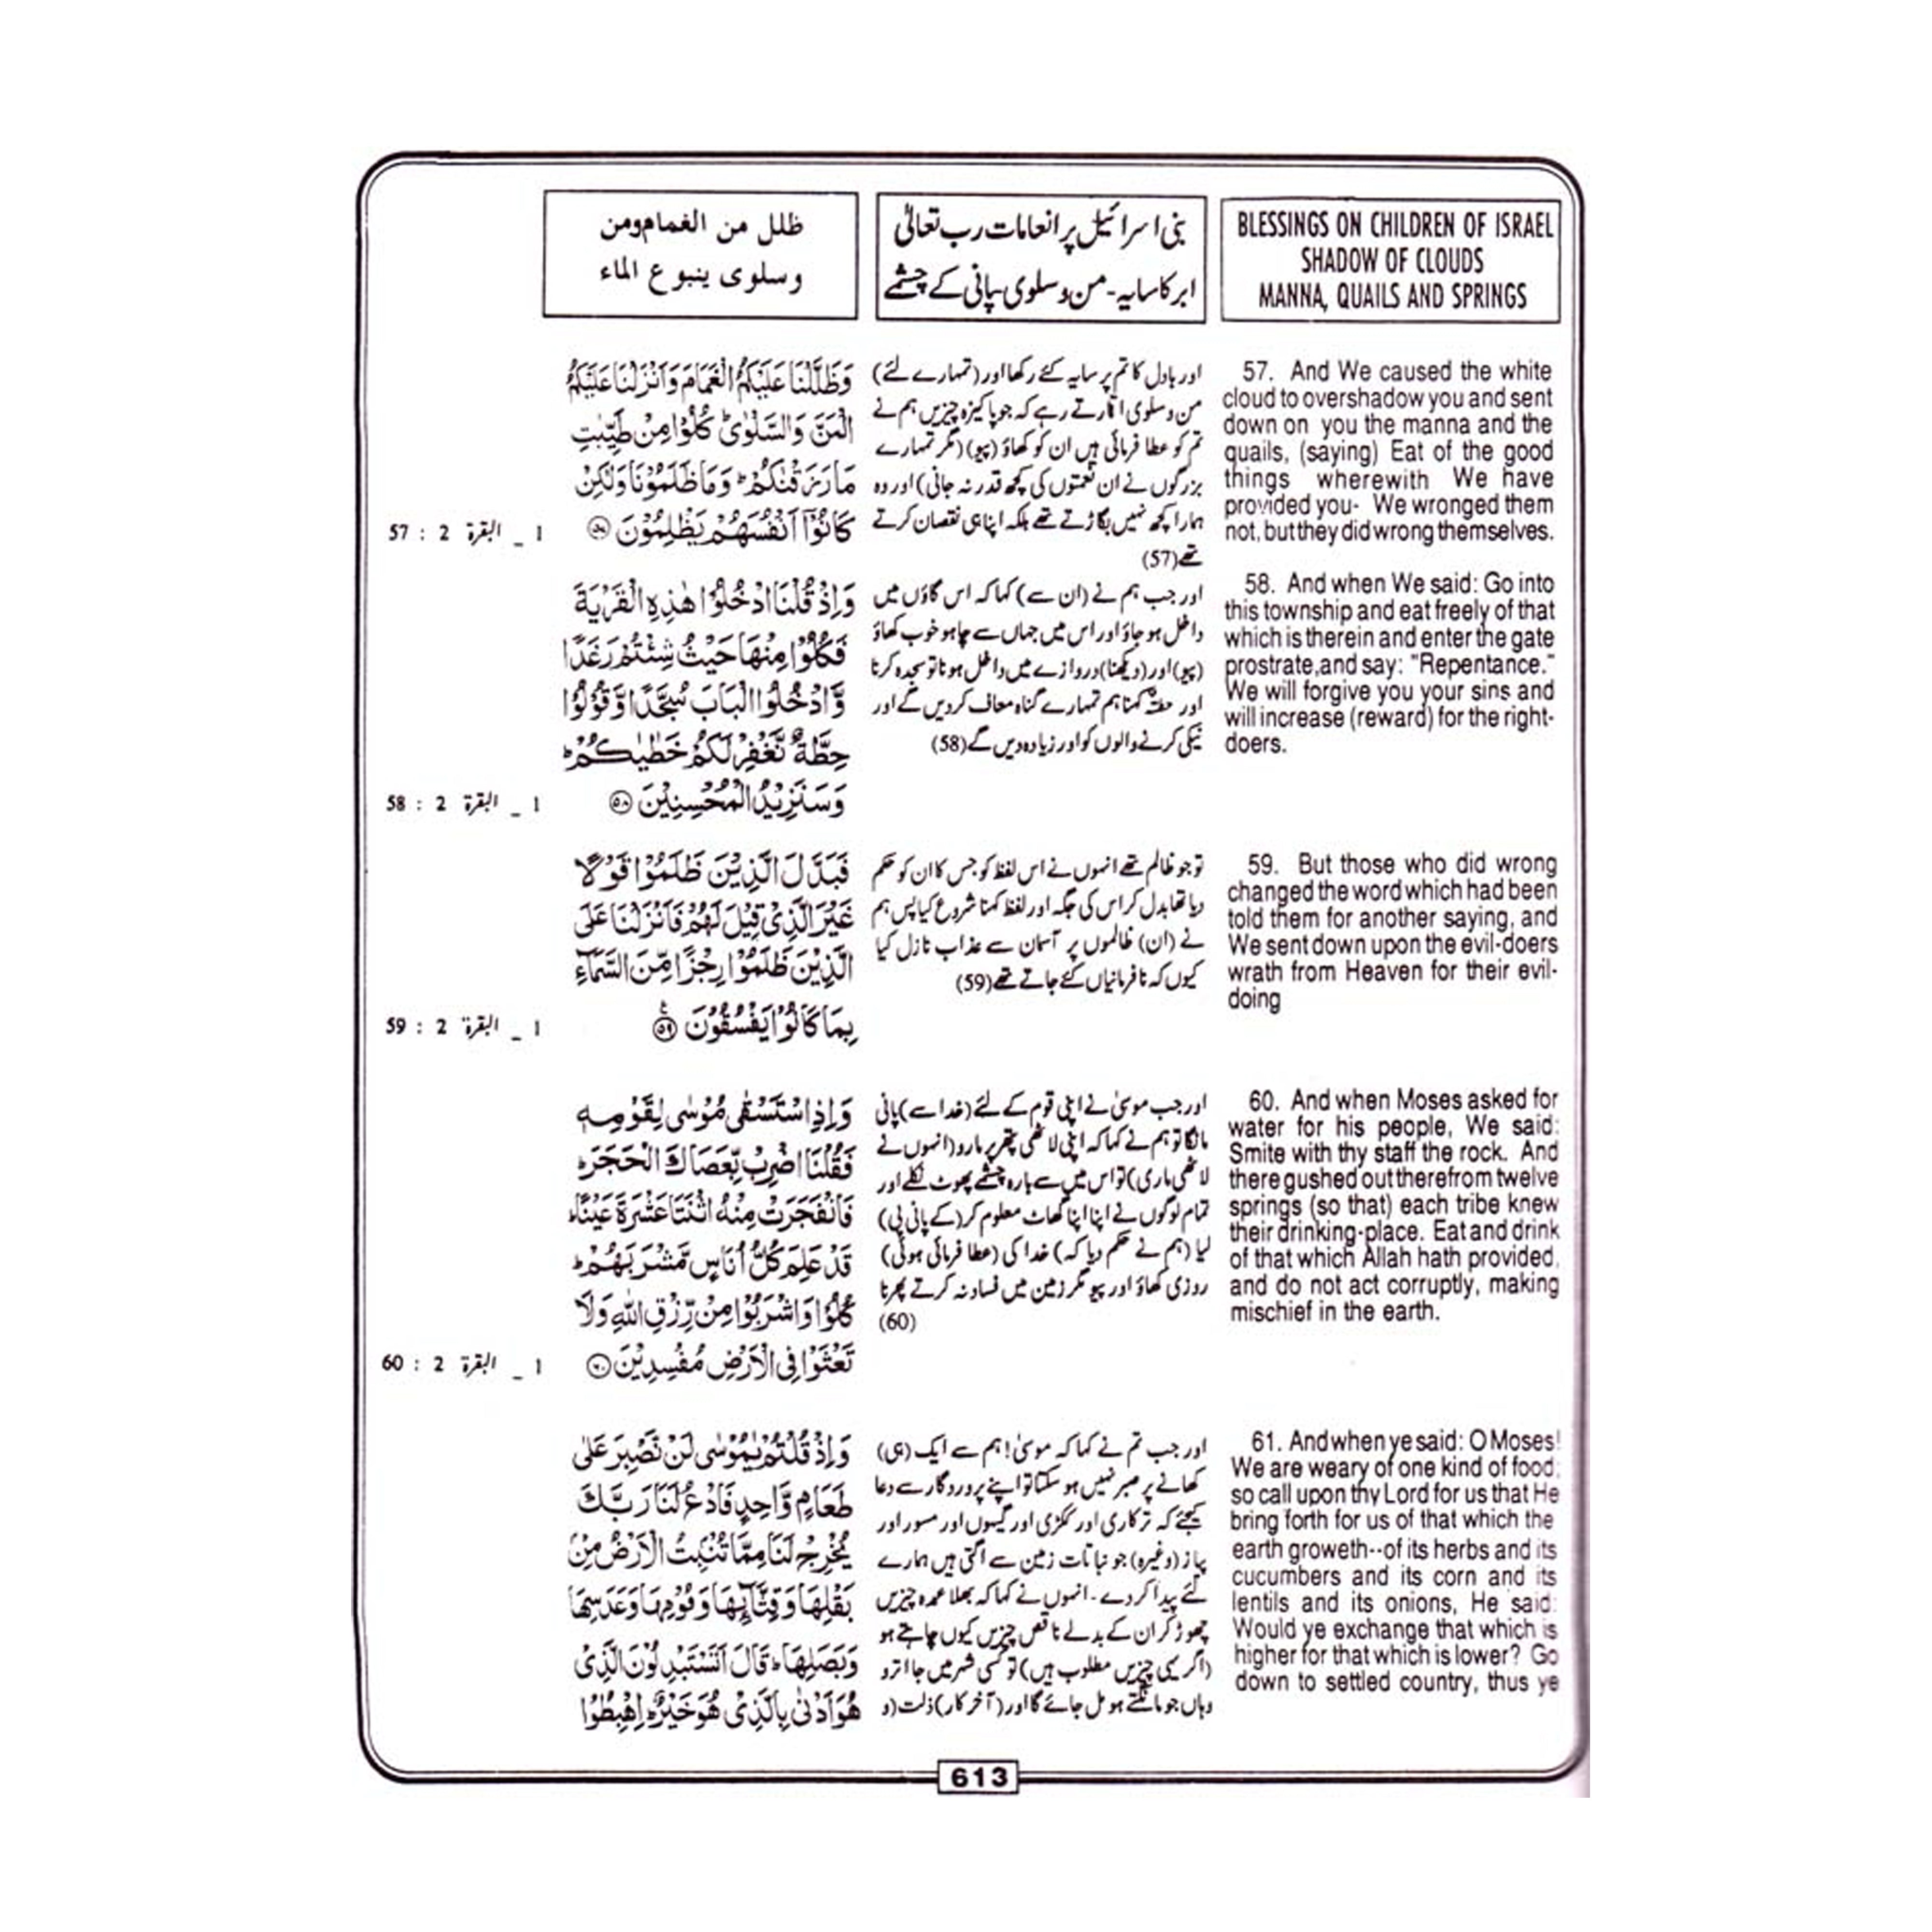 BLESSINGS ON CHILDREN OF ISRAEL
SHADOW OF CLOUDS
MANNA, QUAILS AND SPRINGS
57. And We caused the white
cloud to overshadow you and sent
down on you the manna and the
quails, (saying) Eat of the good
things wherewith We have
provided you- We wronged them
not, but they did wrong themselves.
58. And when We said: Go into
this township and eat freely of that
which is therein and enter the gate
prostrate,and say: "Repentance."
We will forgive you your sins and
will increase (reward) for the right-
doers.
59. But those who did wrong
changed the word which had been
told them for another saying, and
We sent down upon the evil-doers
wrath from Heaven for their evil-
doing
60. And when Moses asked for
water for his people, We said:
Smite with thy staff the rock. And
there gushed out therefrom twelve
springs (so that) each tribe knew
their drinking-place. Eat and drink
of that which Allah hath provided,
and do not act corruptly, making
mischief in the earth.
61. And when ye said: O Moses!
We are weary of one kind of food;
so call upon thy Lord for us that He
bring forth for us of that which the
earth groweth--of its herbs and its
cucumbers and its corn and its
lentils and its onions, He said:
Would ye exchange that which is
higher for that which is lower? Go
down to settled country, thus ye
بنی اسرائیل پر انعامات رب تعالیٰ
ابر کا سایہ - من و سلوی پانی کے چشمے
اور بادل کا تم پر سایہ کئے رکھا اور (تمہارے لئے)
من و سلوی اتارتے رہے کہ جو پاکیزہ چیزیں ہم نے
تم کو عطا فرمائی ہیں ان کو کھاؤ (پیو) (مگر تمہارے
بزرگوں نے ان نعمتوں کی کچھ قدر نہ جانی) اور وہ
ہمارا کچھ نہیں بگاڑتے تھے بلکہ اپنا ہی نقصان کرتے
تھے (57)
اور جب ہم نے (ان سے) کہا کہ اس گاؤں میں
داخل ہو جاؤ اور اس میں جہاں سے چاہو خوب کھاؤ
(پیو) اور (دیکھنا) دروازے میں داخل ہونا تو سجدہ کرنا
اور حطۃ کہنا ہم تمہارے گناہ معاف کر دیں گے اور
نیکی کرنے والوں کو اور زیادہ دیں گے (58)
تو جو ظالم تھے انہوں نے اس لفظ کو جس کا ان کو حکم
دیا تھا بدل کر اس کی جگہ اور لفظ کہنا شروع کیا پس ہم
نے (ان) ظالموں پر آسمان سے عذاب نازل کیا
کیوں کہ نافرمانیاں کئے جاتے تھے (59)
اور جب موسیٰ نے اپنی قوم کے لئے (خدا سے) پانی
مانگا تو ہم نے کہا کہ اپنی لاٹھی پتھر پر مارو (انہوں نے
لاٹھی ماری) تو اس میں سے بارہ چشمے پھوٹ نکلے اور
تمام لوگوں نے اپنا اپنا گھاٹ معلوم کر (کے پانی پی)
لیا (ہم نے حکم دیا کہ) خدا کی (عطا فرمائی ہوئی)
روزی کھاؤ اور پیو مگر زمین میں فساد نہ کرتے پھرنا
(60)
اور جب تم نے کہا کہ موسیٰ! ہم سے ایک (ہی)
کھانے پر صبر نہیں ہو سکتا تو اپنے پروردگار سے دعا
کیجئے کہ ترکاری اور ککڑی اور گیہوں اور مسور اور
پیاز (وغیرہ) جو نباتات زمین سے اگتی ہیں ہمارے
لئے پیدا کر دے - انہوں نے کہا کہ بھلا عمدہ چیزیں
چھوڑ کر ان کے بدلے ناقص چیزیں کیوں چاہتے ہو
(اگر یہی چیزیں مطلوب ہیں) تو کسی شہر میں جا اترو
وہاں جو مانگتے ہو مل جائے گا اور (آخر کار) ذلت (و
ظلل من الغمام ومن
وسلوى ينبوع الماء
وَظَلَّلْنَا عَلَيْكُمُ الْغَمَامَ وَاَنْزَلْنَا عَلَيْكُمُ
الْمَنَّ وَالسَّلْوٰى ؕ كُلُوْا مِنْ طَيِّبٰتِ
مَا رَزَقْنٰكُمْ ؕ وَمَا ظَلَمُوْنَا وَلٰكِنْ
كَانُوْٓا اَنْفُسَهُمْ يَظْلِمُوْنَ ۝۵۷ 1 _ البقرة 2 : 57
وَاِذْ قُلْنَا ادْخُلُوْا هٰذِهِ الْقَرْيَةَ
فَكُلُوْا مِنْهَا حَيْثُ شِئْتُمْ رَغَدًا
وَّادْخُلُوا الْبَابَ سُجَّدًا وَّقُوْلُوْا
حِطَّةٌ نَّغْفِرْ لَكُمْ خَطٰيٰكُمْ ؕ
وَسَنَزِيْدُ الْمُحْسِنِيْنَ ۝۵۸ 1 _ البقرة 2 : 58
فَبَدَّلَ الَّذِيْنَ ظَلَمُوْا قَوْلًا
غَيْرَ الَّذِىْ قِيْلَ لَهُمْ فَاَنْزَلْنَا عَلَى
الَّذِيْنَ ظَلَمُوْا رِجْزًا مِّنَ السَّمَآءِ
بِمَا كَانُوْا يَفْسُقُوْنَ ۝۵۹ 1 _ البقرة 2 : 59
وَاِذِ اسْتَسْقٰى مُوْسٰى لِقَوْمِهٖ
فَقُلْنَا اضْرِبْ بِّعَصَاكَ الْحَجَرَ ؕ
فَانْفَجَرَتْ مِنْهُ اثْنَتَا عَشْرَةَ عَيْنًا ؕ
قَدْ عَلِمَ كُلُّ اُنَاسٍ مَّشْرَبَهُمْ ؕ
كُلُوْا وَاشْرَبُوْا مِنْ رِّزْقِ اللّٰهِ وَلَا
تَعْثَوْا فِى الْاَرْضِ مُفْسِدِيْنَ ۝۶۰ 1 _ البقرة 2 : 60
وَاِذْ قُلْتُمْ يٰمُوْسٰى لَنْ نَّصْبِرَ عَلٰى
طَعَامٍ وَّاحِدٍ فَادْعُ لَنَا رَبَّكَ
يُخْرِجْ لَنَا مِمَّا تُنْۢبِتُ الْاَرْضُ مِنْۢ
بَقْلِهَا وَقِثَّآئِهَا وَفُوْمِهَا وَعَدَسِهَا
وَبَصَلِهَا ؕ قَالَ اَتَسْتَبْدِلُوْنَ الَّذِىْ
هُوَ اَدْنٰى بِالَّذِىْ هُوَ خَيْرٌ ؕ اِهْبِطُوْا
613